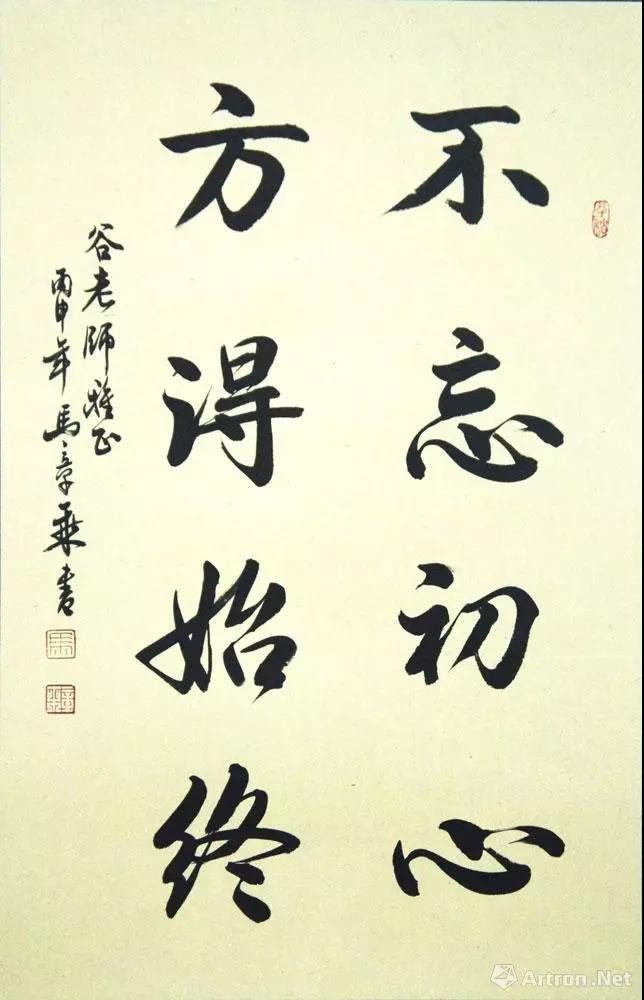 不忘初心
方得始终
谷老师雅正
丙申年马章乘书
Artron.Net